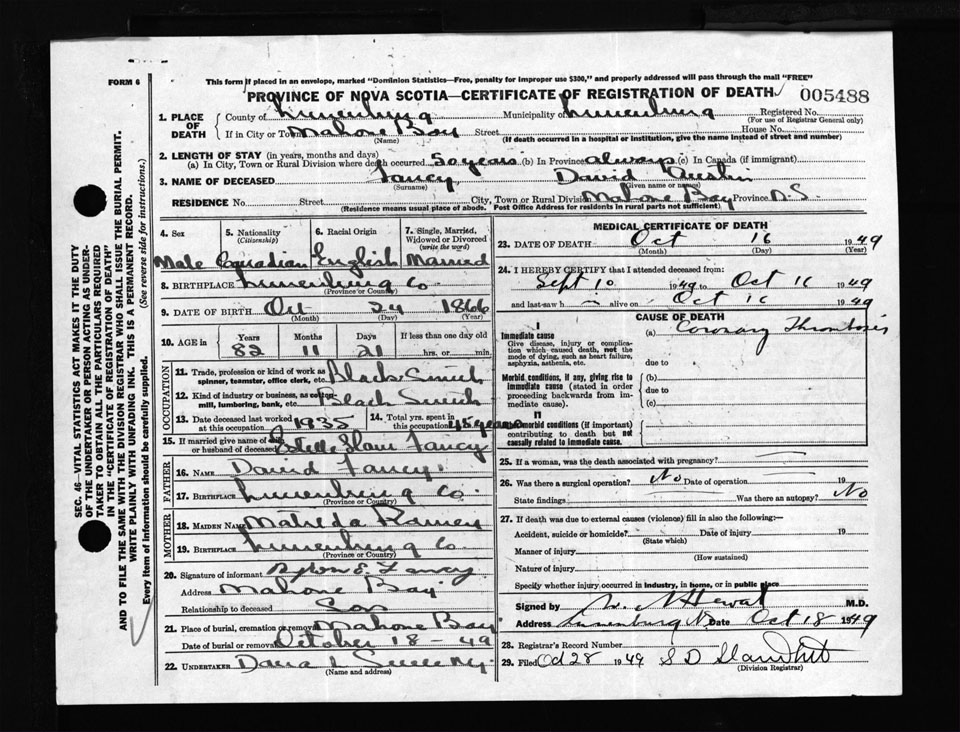 FORM 6
This form if placed in an envelope, marked "Dominion Statistics—Free, penalty for improper use $300," and properly addressed will pass through the mail "FREE"
PROVINCE OF NOVA SCOTIA—CERTIFICATE OF REGISTRATION OF DEATH 005488
1. PLACE OF DEATH County of Lunenburg Municipality of Lunenburg Registered No.
(For use of Registrar General only)
If in City or Town Mahone Bay Street House No.
(Name) (If death occurred in a hospital or institution, give the name instead of street and number)
2. LENGTH OF STAY (in years, months and days)
(a) In City, Town or Rural Division where death occurred 50 years (b) In Province always (c) In Canada (if immigrant)
3. NAME OF DECEASED Fancy David Austin
(Surname) (Given name or names)
RESIDENCE No. Street City, Town or Rural Division Mahone Bay Province N.S
(Residence means usual place of abode. Post Office Address for residents in rural parts not sufficient)
4. Sex 5. Nationality (Citizenship) 6. Racial Origin 7. Single, Married, Widowed or Divorced (write the word)
Male Canadian English Married
8. BIRTHPLACE Lunenburg Co.
(Province or Country)
9. DATE OF BIRTH Oct 24 1866
(Month) (Day) (Year)
10. AGE in Years Months Days If less than one day old
82 11 21 hrs. or min.
OCCUPATION
11. Trade, profession or kind of work as spinner, teamster, office clerk, etc. Black Smith
12. Kind of industry or business, as cotton-mill, lumbering, bank, etc. Black Smith
13. Date deceased last worked at this occupation 1935 14. Total yrs. spent in this occupation 45 years
15. If married give name of wife or husband of deceased Fancy
FATHER
16. NAME David Fancy
17. BIRTHPLACE Lunenburg Co.
(Province or Country)
MOTHER
18. MAIDEN NAME Matilda Ramey
19. BIRTHPLACE Lunenburg Co.
(Province or Country)
20. Signature of informant Byron E. Fancy
Address Mahone Bay
Relationship to deceased Son
21. Place of burial, cremation or removal Mahone Bay
Date of burial or removal October 18 - 49
22. UNDERTAKER
(Name and address)
MEDICAL CERTIFICATE OF DEATH
23. DATE OF DEATH Oct 16 1949
(Month) (Day) (Year)
24. I HEREBY CERTIFY that I attended deceased from:
Sept 10 1949 to Oct 16 1949
and last saw h alive on Oct 16 1949
CAUSE OF DEATH
I
Immediate cause (a) Coronary Thrombosis
Give disease, injury or complication which caused death, not the mode of dying, such as heart failure, asphyxia, asthenia, etc. due to
Morbid conditions, if any, giving rise to immediate cause (stated in order proceeding backwards from immediate cause). (b)
due to
(c)
II
Other morbid conditions (if important) contributing to death but not causally related to immediate cause.
25. If a woman, was the death associated with pregnancy?
26. Was there a surgical operation? No Date of operation 19
State findings Was there an autopsy? No
27. If death was due to external causes (violence) fill in also the following:—
Accident, suicide or homicide? Date of injury 19
(State which)
Manner of injury
(How sustained)
Nature of injury
Specify whether injury occurred in industry, in home, or in public place
Signed by Hewat M.D.
Address Lunenburg N.S. Date Oct 18 1949
28. Registrar's Record Number
29. Filed Oct 28 1949 S D
(Division Registrar)
SEC. 46—VITAL STATISTICS ACT MAKES IT THE DUTY
OF THE UNDERTAKER OR PERSON ACTING AS UNDER-
TAKER TO OBTAIN ALL THE PARTICULARS REQUIRED
IN THE "CERTIFICATE OF REGISTRATION OF DEATH"
AND TO FILE THE SAME WITH THE DIVISION REGISTRAR WHO SHALL ISSUE THE BURIAL PERMIT.
WRITE PLAINLY WITH UNFADING INK. THIS IS A PERMANENT RECORD.
Every item of information should be carefully supplied. (See reverse side for instructions.)